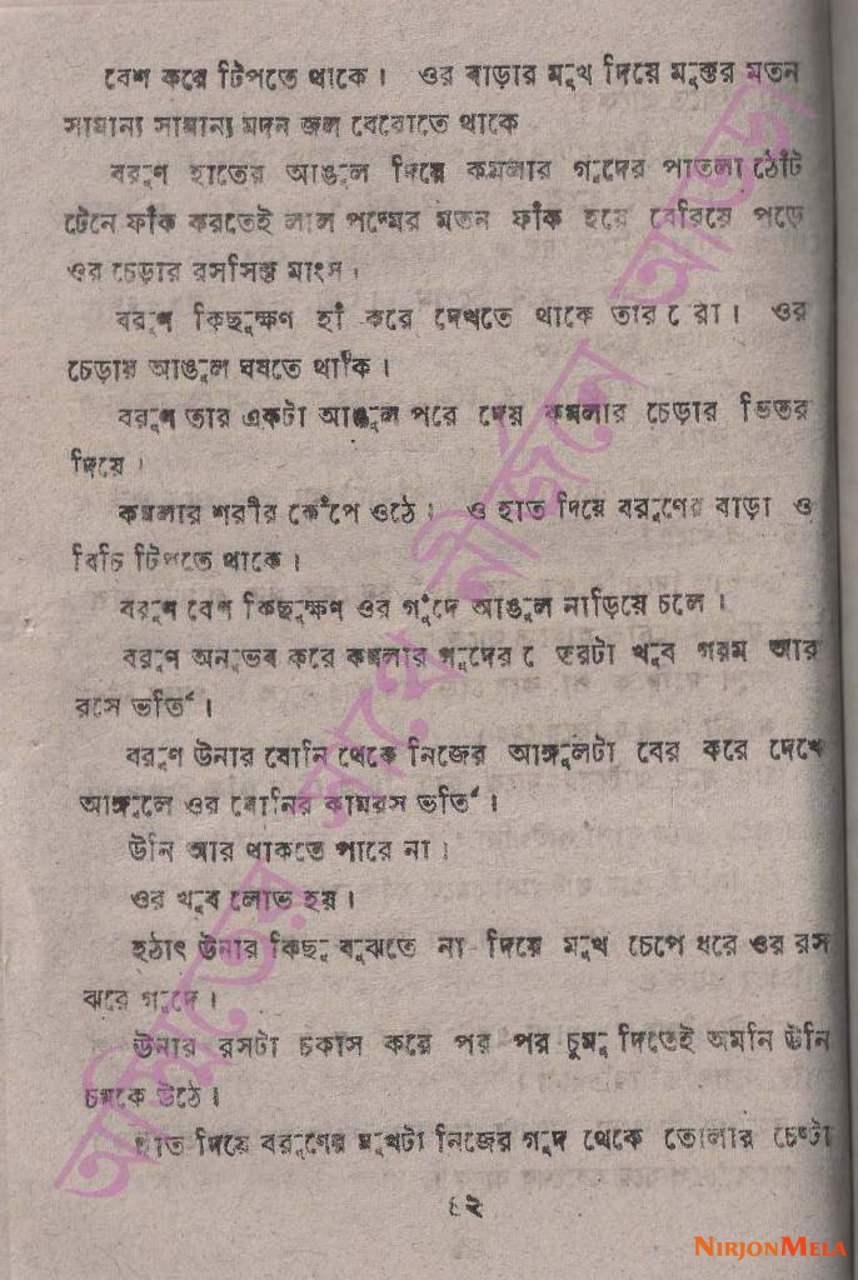 বেশ করে টিপতে থাকে। ওর বাড়ার মুখ দিয়ে মুক্তর মতন
সামান্য সামান্য মদন জল বেরোতে থাকে
বরুণ হাতের আঙুল দিয়ে কমলার গুদের পাতলা ঠোঁট
টেনে ফাঁক করতেই লাল পদ্মের মতন ফাঁক হয়ে বেরিয়ে পড়ে
ওর চেড়ার রসসিক্ত মাংস।
বরুণ কিছুক্ষণ হাঁ করে দেখতে থাকে তার রা। ওর
চেড়ায় আঙুল ঘষতে থাকি।
বরুণ তার একটা আঙুল পরে দেয় কমলার চেড়ার ভিতর
দিয়ে।
কমলার শরীর কেঁপে ওঠে। ও হাত দিয়ে বরুণের বাড়া ও
বিচি টিপতে থাকে।
বরুণ বেশ কিছুক্ষণ ওর গুঁদে আঙুল নাড়িয়ে চলে।
বরুণ অনুভব করে কমলার গুদের তরটা খুব গরম আর
রসে ভর্তি।
বরুণ উনার যোনি থেকে নিজের আঙ্গুলটা বের করে দেখে
আঙ্গুলে ওর যোনির কামরস ভর্তি।
উনি আর থাকতে পারে না।
ওর খুব লোভ হয়।
হঠাৎ উনার কিছু বুঝতে না দিয়ে মুখ চেপে ধরে ওর রস
ঝরে গুদে।
উনার রসটা চকাস করে পর পর চুমু দিতেই অমনি উনি
চমকে উঠে।
হাত দিয়ে বরুণের মুখটা নিজের গুদ থেকে তোলার চেষ্টা
৪২
আমিতের সাথে নীর্জনে আড্ডা
NIRJONMELA